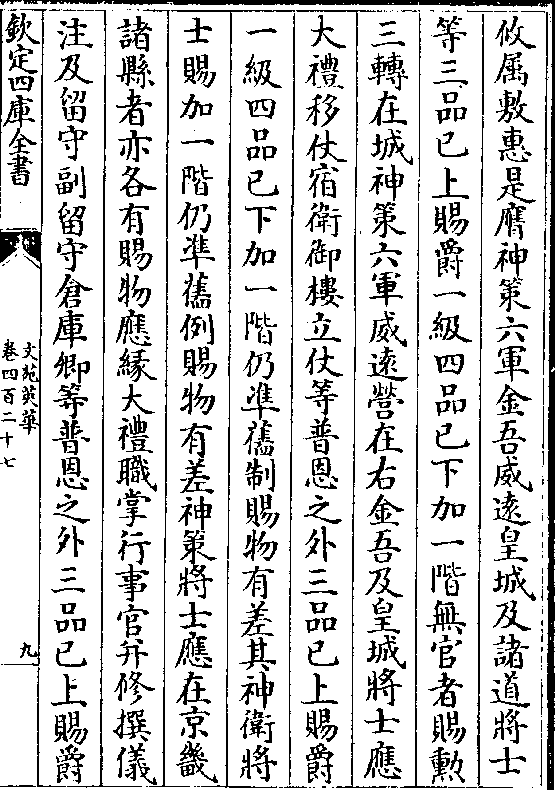 攸属敷惠是膺神策六軍金吾威遠皇城及諸道將士
等三品已上賜爵一級四品已下加一階無官者賜勲
三轉在城神策六軍威遠營在右金吾及皇城將士應
大禮移仗宿衛御樓立仗等普恩之外三品已上賜爵
一級四品已下加一階仍凖舊制賜物有差其神衛將
士賜加一階仍凖舊例賜物有差神策將士應在京畿
諸縣者亦各有賜物應緣大禮職掌行事官并修撰儀
注及留守副留守倉庫卿等普恩之外三品已上賜爵
欽定四庫全書
文苑英華
卷四百二十七
九